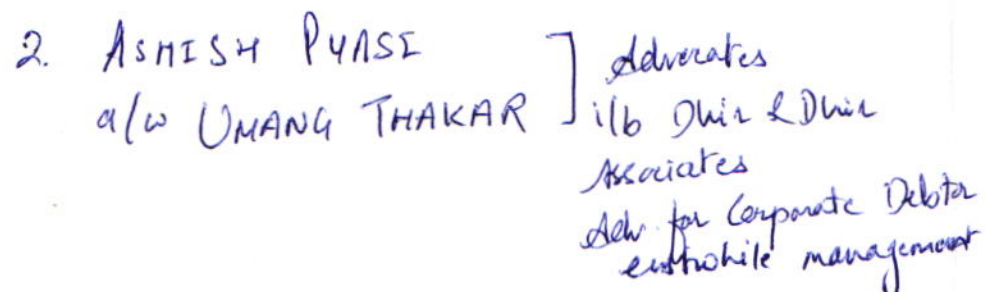 2. ASHISH PYASI
a/w UMANG THAKAR ] Advocates
i/b Dhir & Dhir
Associates
Adv for Corporate Debtor
erstwhile management